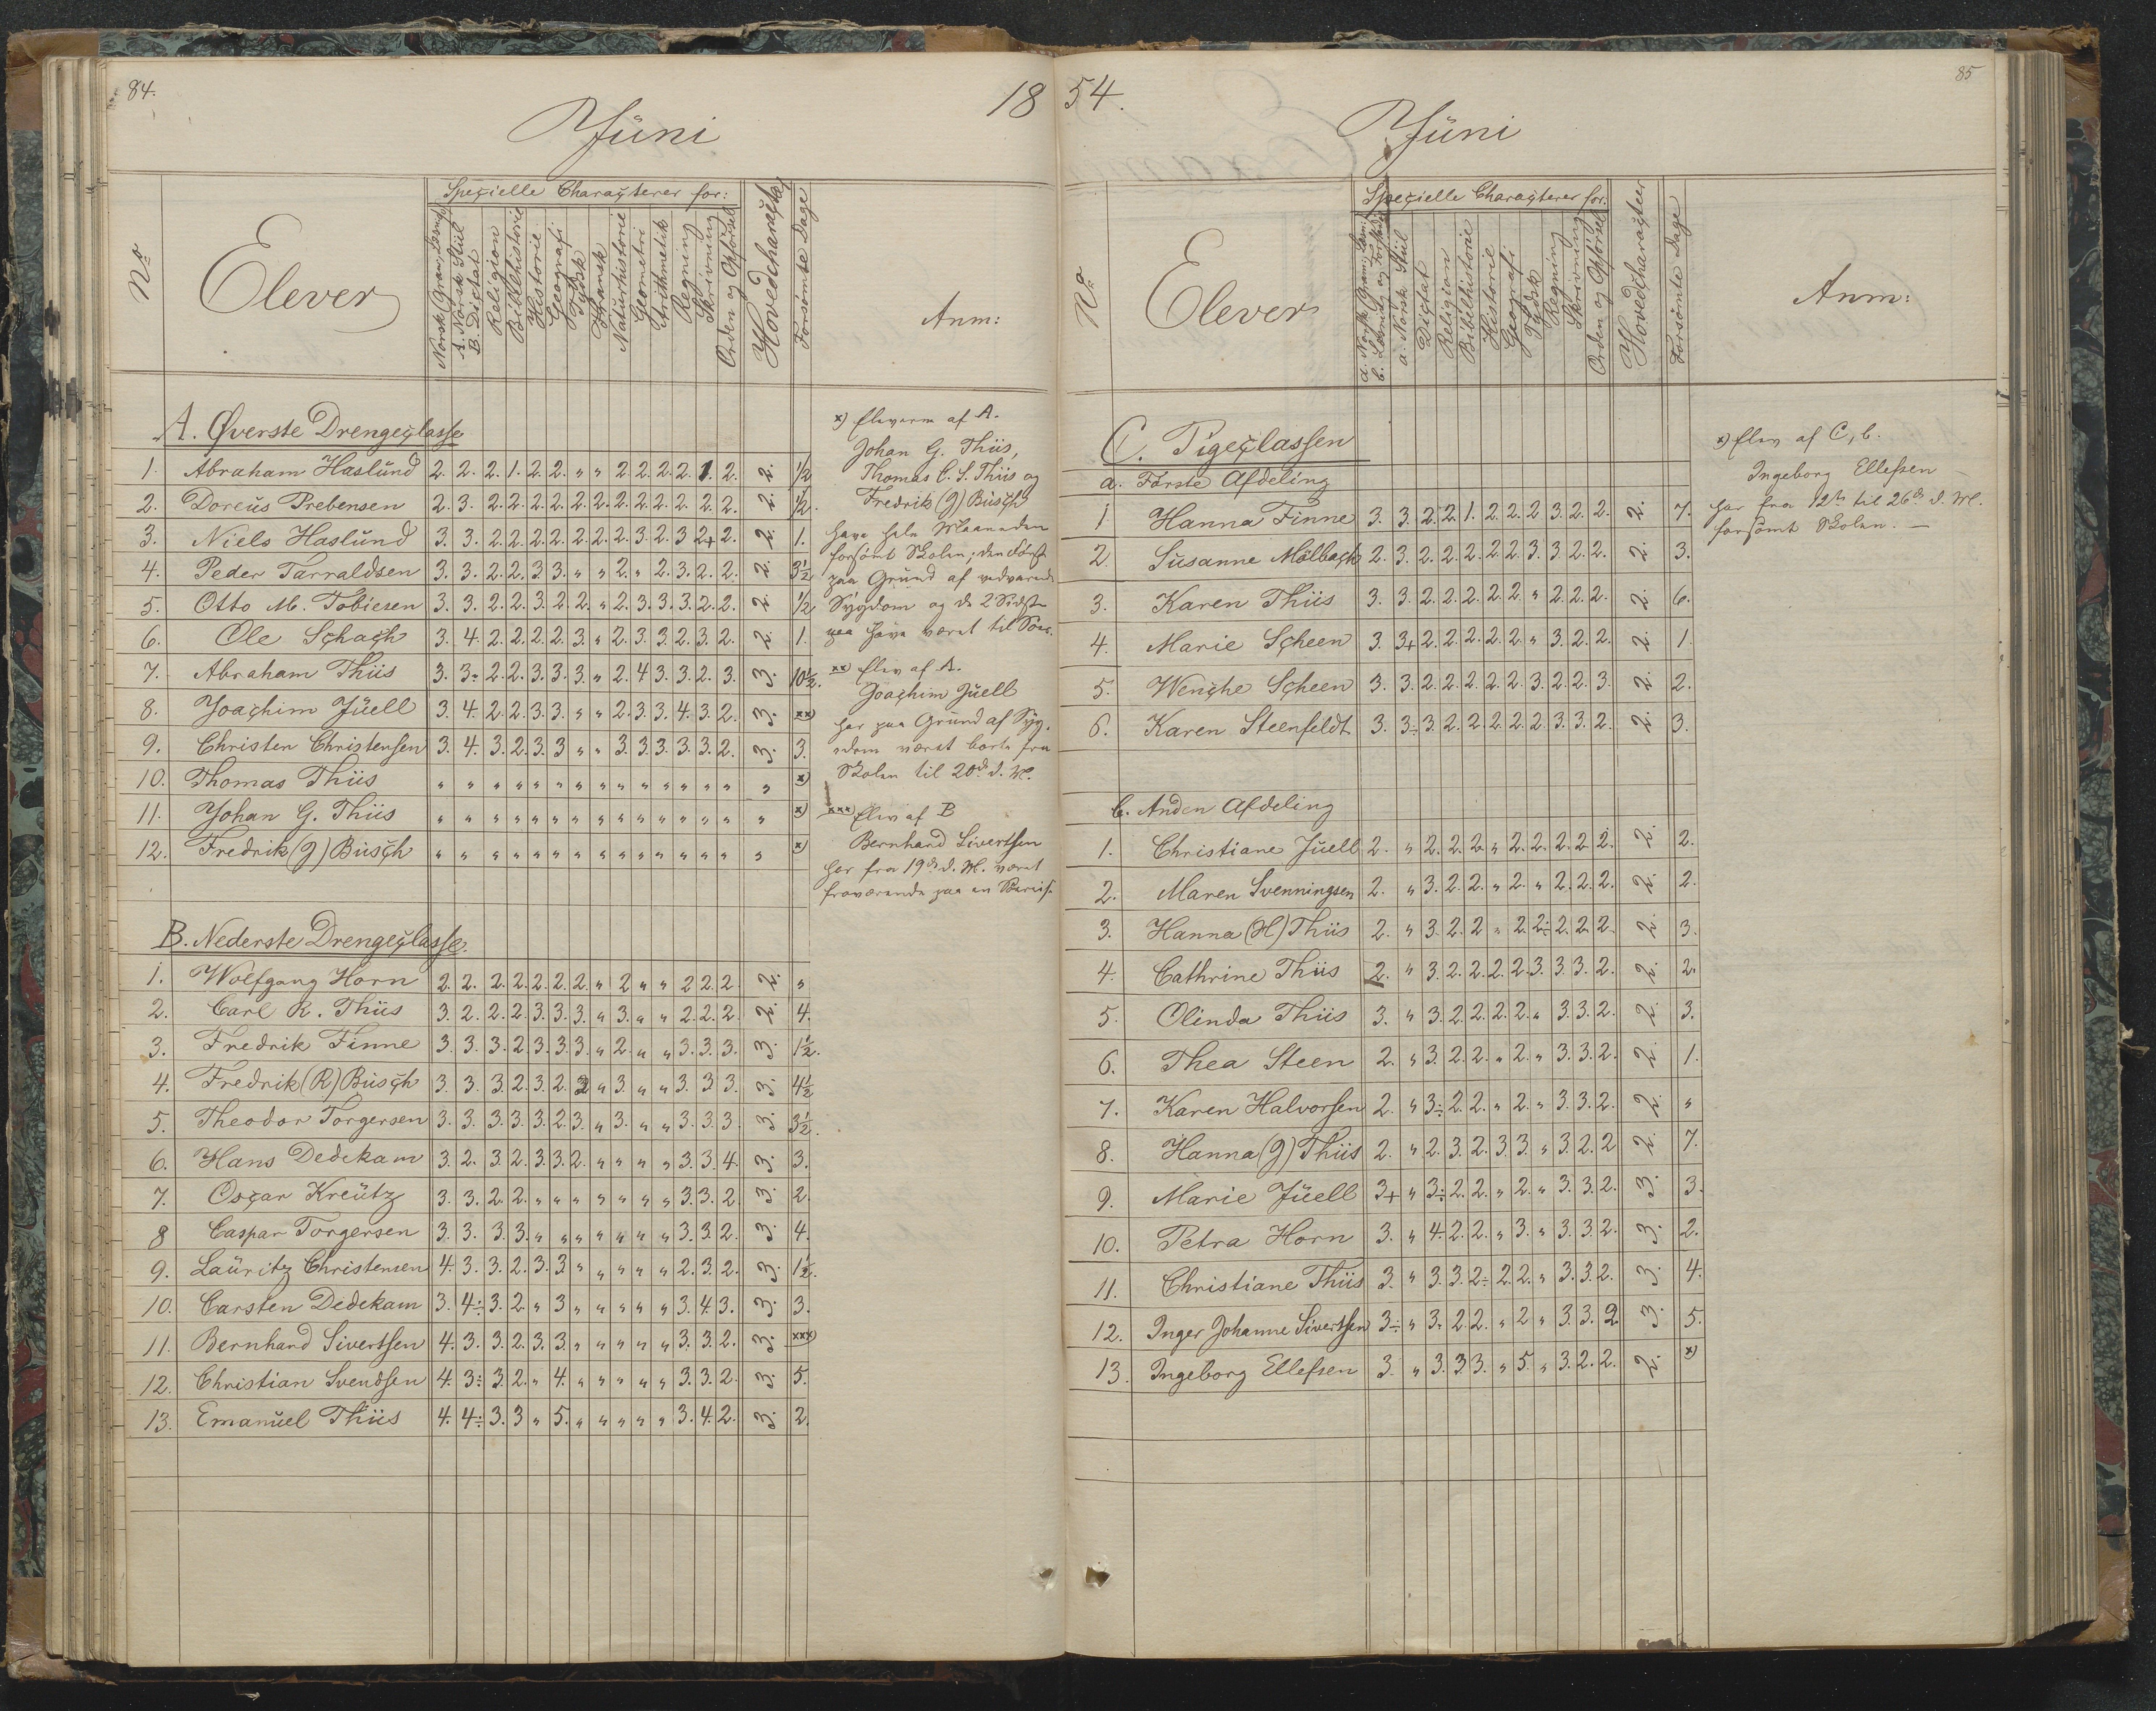 84.
18
Juni
No
Elever
Specielle Characterer for:
Norsk Gram., Læsn.
A. Norsk Stiil
B. Dictat
Religion
Bibelhistorie
Historie
Geografi
Tydsk
Fransk
Naturhistorie
Geometri
Arithmetik
Regning
Skrivning
Orden og Opførsel
Hovedcharakter
Forsømte Dage
Anm:
A. Øverste Drengeclasse
1. Abraham Haslund 2. 2. 2. 1. 2. 2. " " 2 2. 2. 2. 1. 2. 2. 1/2
2. Doreus Prebensen 2. 3. 2. 2. 2. 2. 2. 2. 2. 2. 2. 2. 2. 2. 2. 1/2.
3. Niels Haslund 3. 3. 2. 2. 2. 2. 2. 2. 2. 3. 2. 3 2+ 2. 2. 1.
4. Peder Tarraldsen 3. 3. 2. 2. 3. 3. " " 2. " 2. 3. 2. 2. 2. 3 1/2
5. Otto M. Tobiesen 3. 3. 2. 2. 3. 2. 2. " 2. 3. 3. 3. 2. 2. 2. 1/2
6. Ole Schach 3. 4. 2. 2. 2. 2. 3. " 2. 3. 3. 2. 3. 2. 2. 1.
7. Abraham Thiis 3. 3÷ 2. 2. 3. 3. 3. " 2. 4 3. 3. 2. 3. 3. 10 1/2.
8. Joachim Juell 3. 4. 2. 2. 3. 3. " " 2. 3. 3. 4. 3. 2. 3. xx)
9. Christen Christensen 3. 4. 3. 2. 3. 3 " " 3. 3. 3. 3. 3. 2. 3. 3.
10. Thomas Thiis " " " " " " " " " " " " " " " x)
11. Johan G. Thiis " " " " " " " " " " " " " " " x)
12. Fredrik (J) Busch " " " " " " " " " " " " " " " x)
x) Eleverne af A.
Johan G. Thiis,
Thomas C. S. Thiis og
Fredrik (J) Busch
have hele Maaneden
forsømt Skolen; den første
paa Grund af vedvarende
Sygdom og de 2 Sidste
paa have været til Søes.
xx) Elev af A.
Joachim Juell
har paa Grund af Syg-
dom været borte fra
Skolen til 20de d. M.
xxx) Elev af B
Bernhard Sivertsen
har fra 19de d. M. været
fraværende paa en
B. Nederste Drengeclasse.
1. Wolfgang Horn 2. 2. 2. 2. 2. 2. 2. " 2 " " 2 2. 2 2. "
2. Carl R. Thiis 3. 2. 2. 2. 3. 3. 3. " 3. " " 2. 2. 2. 2. 4.
3. Fredrik Finne 3. 3. 3. 2 3. 3. 3. " 2. " " 3. 3. 3. 3. 1 1/2.
4. Fredrik (R) Busch 3. 3. 3 2. 3. 2. 3 " 3. " " 3. 3 3. 3. 4 1/2
5. Theodor Torgersen 3. 3. 3. 3. 3. 2. 3. " 3. " " 3. 3. 3. 3. 3 1/2.
6. Hans Dedekam 3. 2. 3. 2. 3. 3. 2. " " " " 3. 3. 4. 3. 3.
7. Oscar Kreutz 3. 3. 2. 2. " " " " " " " 3. 3. 2. 3. 2.
8 Caspar Torgersen 3. 3. 3. 3. " " " " " " " 3. 3. 2. 3. 4.
9. Lauritz Christensen 4. 3. 3. 2. 3. 3 " " " " " 2. 3. 2. 3. 1 1/2.
10. Carsten Dedekam 3. 4÷ 3. 2. " 3 " " " " " 3. 4. 3. 3. 3.
11. Bernhard Sivertsen 4. 3. 3. 2 3. 3. " " " " " 3. 3. 2. 3. xxx)
12. Christian Svendsen 4. 3÷ 3. 2. " 4. " " " " " 3. 3. 2. 3. 5.
13. Emanuel Thiis 4. 4÷ 3. 3 " 5. " " " " " 3. 4. 2. 3. 2.
54.
85
Juni
No
Elever
Specielle Characterer for:
a. Norsk Gram., Læsn.
b. Læsning og Forstand
a. Norsk Stiil
Dictat
Religion
Bibelhistorie
Historie
Geografi
Tydsk
Regning
Skrivning
Orden og Opførsel
Hovedcharacter
Forsømte Dage
Anm:
C. Pigeclassen
a. Første Afdeling
1 Hanna Finne 3. 3. 2. 2. 1. 2. 2. 2 3. 2. 2. 2. 7.
2. Susanne Mölbach 2. 3. 2. 2. 2. 2. 2. 3. 3. 2. 2. 2. 3.
3. Karen Thiis 3. 3. 2. 2. 2. 2. 2. " 2. 2. 2. 2. 6.
4. Marie Scheen 3. 3+ 2. 2. 2. 2. 2. " 3. 2. 2. 2. 1.
5. Wenche Scheen 3. 3. 2. 2. 2. 2. 2. 3. 2. 2. 3. 2. 2.
6. Karen Steenfeldt 3. 3÷ 3. 2. 2. 2. 2. 2. 3. 3. 2. 2. 3.
x) Elev af C, b.
Ingeborg Ellefsen
har fra 12te til 26de d. M.
forsømt Skolen. —
b. Anden Afdeling
1. Christiane Juell 2. " 2. 2. 2. " 2. 2. 2. 2. 2. 2. 2.
2. Maren Svenningsen 2. " 3. 2. 2. " 2. " 2. 2. 2. 2. 2.
3. Hanna (H) Thiis 2. " 3. 2. 2 " 2. 2÷ 2. 2. 2. 2. 3.
4. Cathrine Thiis 2. " 3. 2. 2. 2. 2. 3. 3. 3. 2. 2. 2.
5. Olinda Thiis 3. " 3. 2. 2. 2. 2. " 3. 3. 2. 2. 3.
6. Thea Steen 2. " 3. 2. 2. " 2. " 3. 3. 2. 2. 1.
7. Karen Halvorsen 2. " 3÷ 2. 2. " 2. " 3. 3. 2. 2. "
8. Hanna (J) Thiis 2. " 2. 3. 2. 3. 3. " 3. 2. 2 2. 7.
9. Marie Juell 3+ " 3÷ 2. 2. " 2. " 3. 3. 2. 3. 3.
10. Petra Horn 3. " 4. 2. 2. " 3. " 3. 3. 2. 3. 2.
11. Christiane Thiis 3. " 3. 3. 2÷ 2. 2. " 3. 3. 2. 3. 4.
12. Inger Johanne Sivertsen 3÷ " 3. 2. 2. " 2 " 3. 3. 2 3. 5.
13. Ingeborg Ellefsen 3. " 3. 3. 3. " 5. " 3. 2. 2. 2. x)